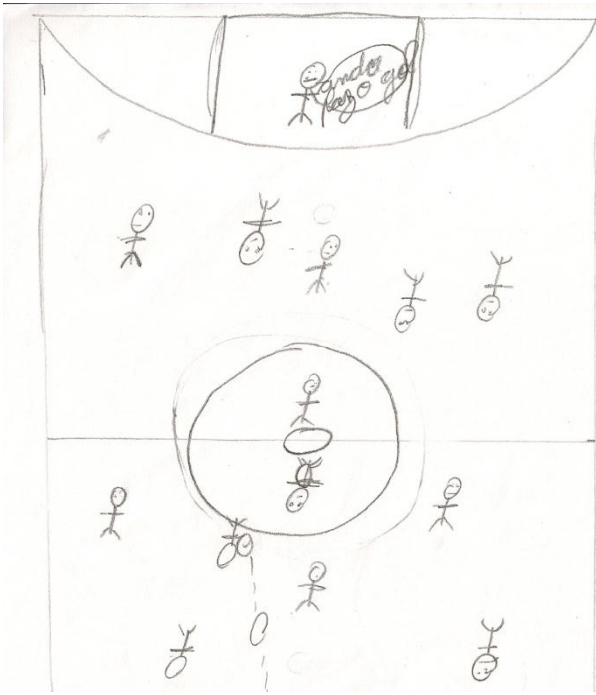 ando
faz o gol